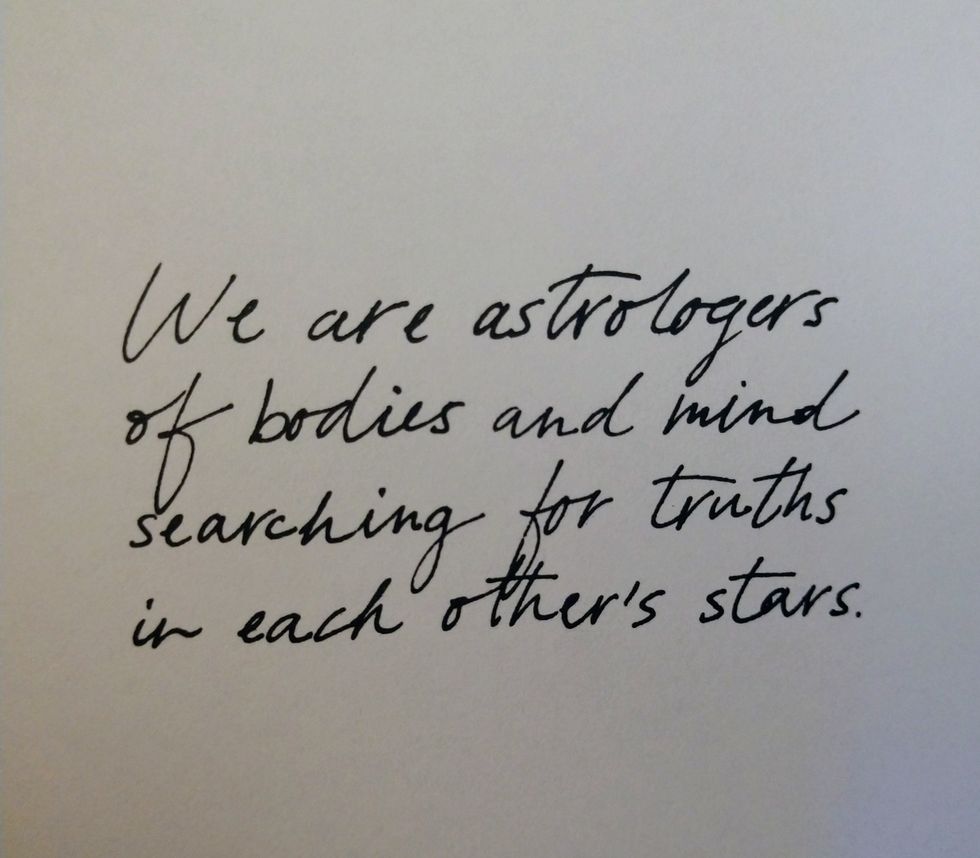 We are astrologers
of bodies and mind
searching for truths
in each other's stars.